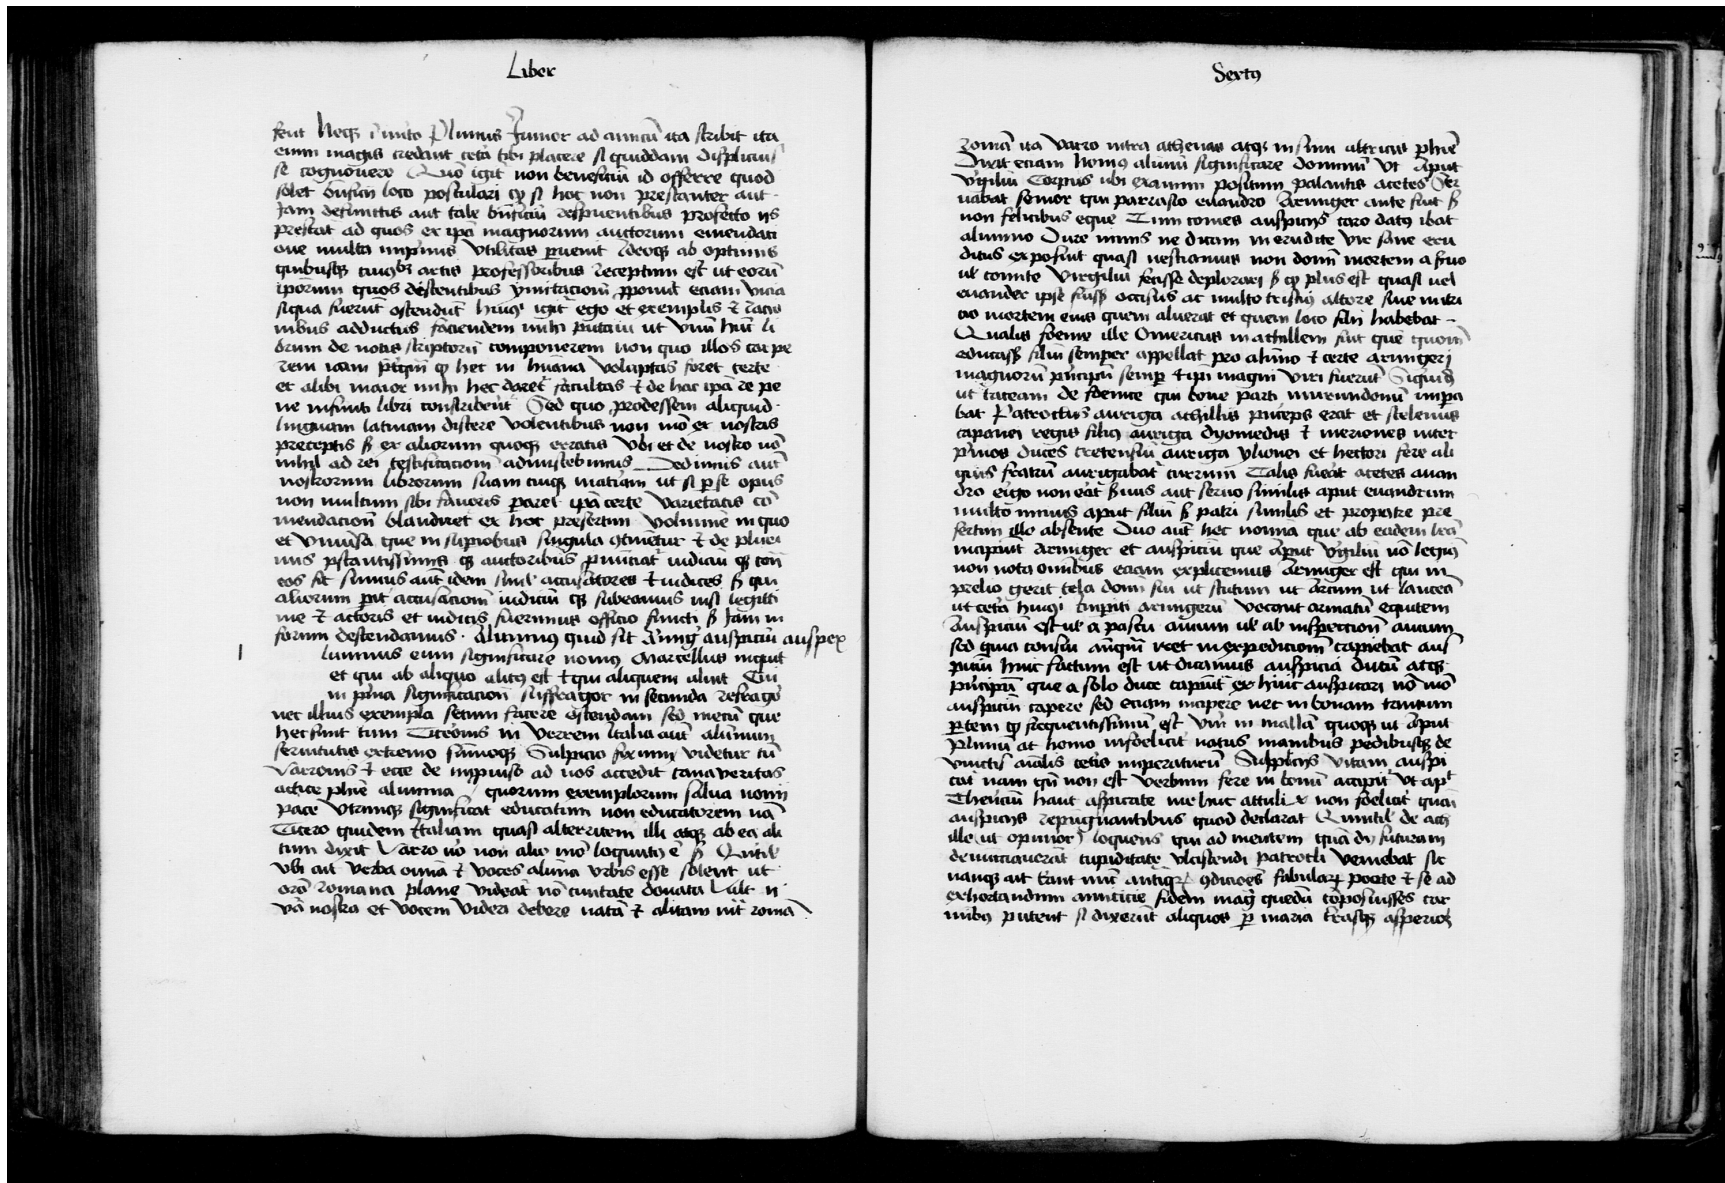 Liber
feut Neqꝫ īiurio Plinius Junior ad amicū ita scribit ita
enim magis credunt cetā tibi placere si quiddam displicuis
se cognouere Quō igit̉ non beneficiū id offerre quod
solet bn̄ficii loco postulari qꝫ si hoc non prestanter aut
Jam defunctis aut tale bn̄ficiū respuentibus profecto iis
prestat ad quos ex ipā magnorum auctorum emendati
one multa imprimis vtilitas puenit Ideoqꝫ ab optimis
quibusqꝫ cuiusqꝫ artis professoribus receptum est ut eorū
ipsorum quos discentibus ymitacioni pponūt eciam vicia
siqua fuerūt ostendūt huiꝰ igit̉ ego et exemplis et racio
nibus adductus faciendem mihi putaui ut vnū hūc li
brum de notis scriptorū componerem non quo illos carpe
rem iam prīqm̄ qꝫ hec in huāna voluptas foret certe
et alibi maior mihi hec daret̉ facultas et de hac ipā re pe
ne infiniti libri conscribent̉ Sed quo prodessem aliquid
linguam latinam discere volentibus non mō ex nostris
preceptis sꝫ ex aliorum quoqꝫ erratis vbi et de nostro nō
nihil ad rei testificacionē admiscebimus Dedimus autē
nostrorum librorum suam cuiqꝫ matiam ut si p se opus
non multum sibi fauoris paret ipā certe varietatis cō
mendacionē blandiret̉ ex hoc presertim volumine in quo
et vniuersa que in supioribus singula ꝯtinētur et de pluri
mis pstantissimis qꝫ auctoribus pnūciat̉ iudiciū
eos sit sumus autē idem simul accusatores et iudices sꝫ qui
aliorum pit accusacionē iudiciū qꝫ subeamus nisi legitti
me et actoris et iudicis fuerimus officio functi sꝫ Jam in
forum descendamus. Alumnus quid sit Armigꝰ auspiciū auspex
lumnus eum significare nomꝰ Marcellus inquit
et qui ab aliquo alitꝰ est et qui aliquem alunt Cui
in prima significacionē suffragor in secunda refrago
nec illius exempla secum facere ostendam sed mecū que
hec sunt tum Ciceronis in verrem Italia autē alumnum
seruitutis extremo sūmoqꝫ Supplicio fixum videtur tū
Varronis et ecce de improuiso ad nos accedit cana veritas
attice phīe alumna quorum exemplorum salua nonij
pace vtrumqꝫ significat educatum non educatorem nā
Cicero quidem Italiam quasi altericem illi atqꝫ ab ea ali
tum dixit Varro vo non alio mō loquutꝰ ē sꝫ Quitil̉
vbi ait verba omīa et voces alūna vrbis esse solent ut
orō romana plane videat̉ nō ciuitate donata Valt n̄
vā nostra et vocem videri debere natā et alitam intͣ romā
Sextꝰ
zonā ita varro intra athenas atqꝫ in sinu altricis phīe
Dixit eciam homꝰ alūnū significare dominū Vt aput
Virgiliū Corpus ubi exanimi positum palantis acetes Ser
uabat senior qui parrasio euandro Armiger ante fuit sꝫ
non felicibus eque Tum comes auspiciis caro datꝰ ibat
alumno Dure nimis ne dicam in erudite vir sane eru
ditus exposuit quasi nesciamus non domī mortem a suo
uel comite virgiliū fecisse deplorari sꝫ qꝫ plus est quasi uel
euander ipse fuissꝫ occisus ac multo tristiꝰ altore siue nutri
cio mortem eius quem aluerat et quem loco filii habebat
Qualis foenix ille Omericus in achillem fuit que quom
educassꝫ filiū semper appellat pro alūno et certe armigeri
magnorū principū semp et ipi magni viri fuerūt Siquidꝫ
ut taceam de foenice qui bone parti mirmidonū impa
bat Patroclus auriga achillis princeps erat et stelenus
capanei regis filiꝰ auriga dyomedis et meriones inter
primos duces cretensiū auriga ylionei et hectori fere ali
quis fratrū aurigabat currum Talis fuerat acetes euan
dro ergo non erat seruus aut seruo similis aput euandrum
multo minus aput filiū sꝫ patri similis et propatre pre
sertim illo absente Duo autē hec nomīa que ab eadem lrā
incipiūt Armiger et auspiciū que aput virgiliū nō legiꝰ
non nota omībus eciam explicemus Armiger est qui in
prelio gerit tela domī sui ut scutum ut arcum ut lanceā
ut cetā huiꝰ īmpiti armigerū vocant armatū equitem
Auspiciū est uel a pastu auium uel ab inspectionē auium
sed quia consul āuq̄m̄ iret in expedicionē capiebat aus
piciū hinc factum est ut dicamus auspicia ducū atqꝫ
principū que a solo duce capiūt̉ ex hinc auspicari nō mō
auspiciū capere sed eciam incipere nec in bonam tantum
ptem qꝫ frequentissimū est vnī in mallā quoqꝫ ut aput
Pliniū at homo infoelicit̉ natus manibus pedibusqꝫ de
vinctis aīalis cetis imperaturū Suppliciis vitam auspi
cat̉ nam q̄n non est verbum fere in bonū accipit̉ vt apͭ
Therēciū haut aspicate me huc attuli non foelicit̉ quasi
auspiciis repugnantibus quod declarat Quintil̉ de ach
ille (ut opinor) loquens qui ad mentem quā dij futuram
denuntiauerāt cupiditate vlciscendi patrocli veniebat sic
nanqꝫ ait erant mīi antiqꝝ ꝯdiciones fabulaꝝ poete et se ad
exhortandum amicicie fidem magꝰ quedā cōposuisses car
minibꝰ putent si dixerūt aliquos p maria terrasqꝫ asperioꝝ